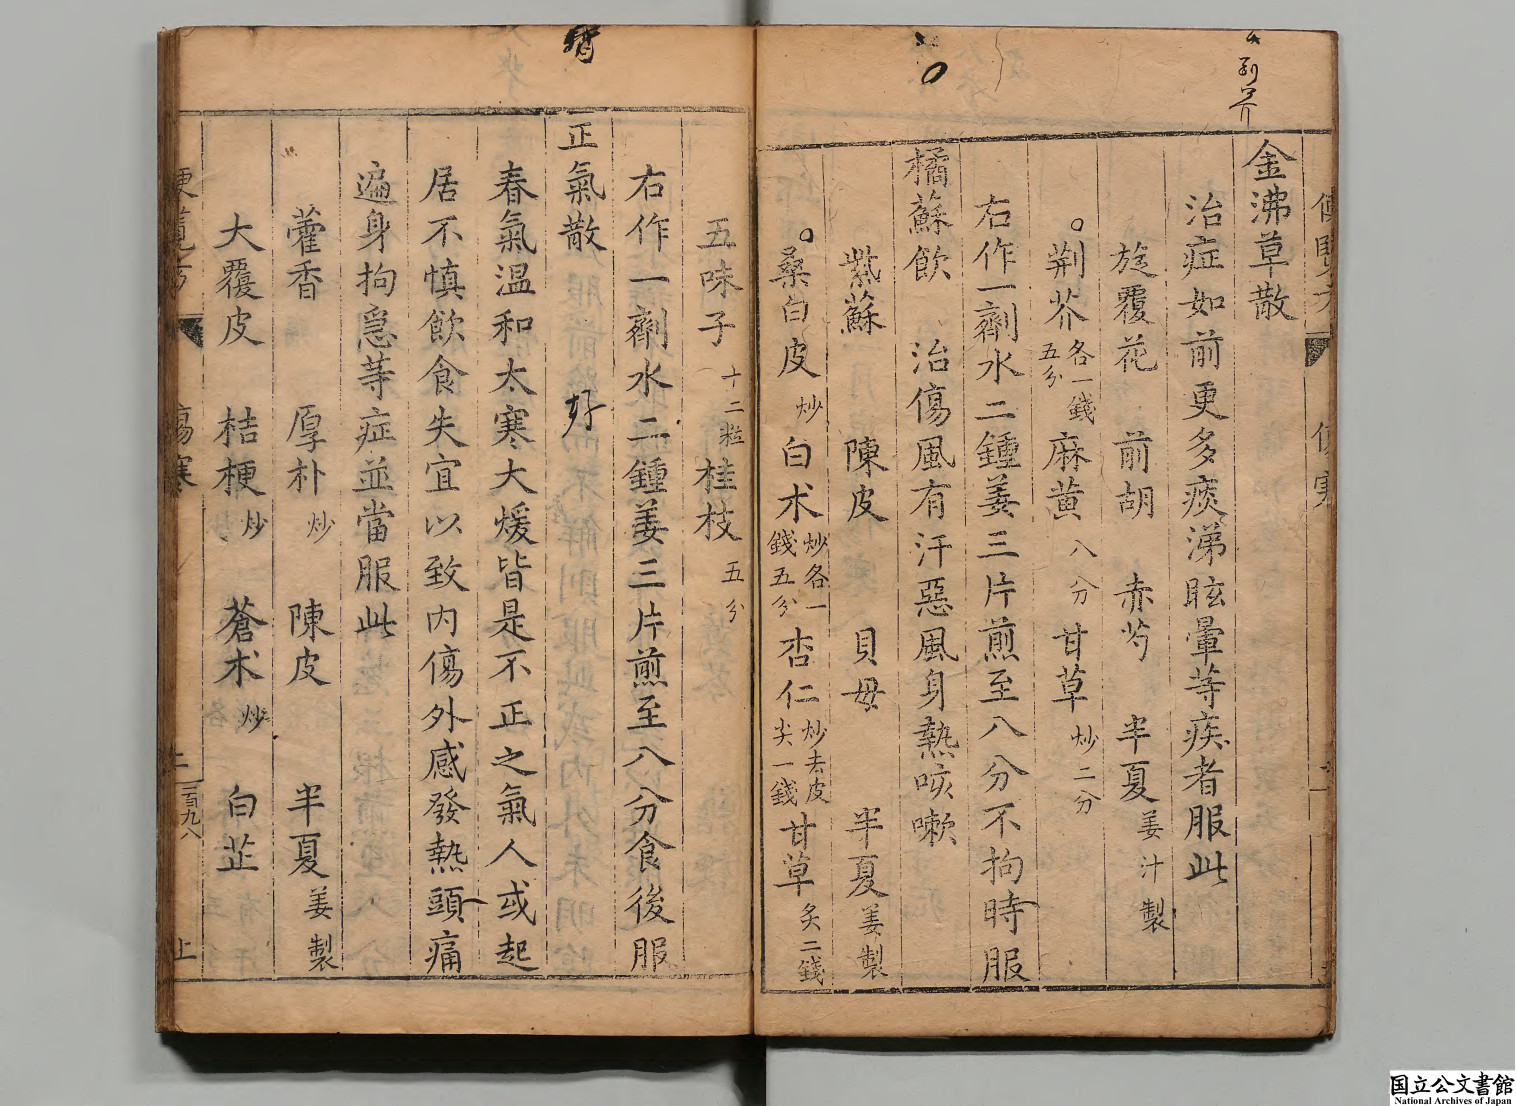 金沸草散
治症如前更多痰涕眩暈等疾者服此
旋覆花 前胡 赤芍 半夏姜汁製
荆芥各一錢五分 麻黄八分 甘草炒二分
右作一劑水二鍾姜三片煎至八分不拘時服
橘蘇飲 治傷風有汗惡風身熱咳嗽
紫蘇 陳皮 貝母 半夏姜製
桑白皮炒 白术炒各一錢五分 杏仁炒去皮尖一錢 甘草炙二錢
五味子十二粒 桂枝五分
右作一劑水二鍾姜三片煎至八分食後服
正氣散 好
春氣温和太寒大煖皆是不正之氣人或起
居不慎飲食失宜以致内傷外感發熱頭痛
遍身拘急等症並當服此
藿香 厚朴炒 陳皮 半夏姜製
大覆皮 桔梗炒 蒼术炒 白芷
傷寒 三百九八 上
国立公文書館
National Archives of Japan